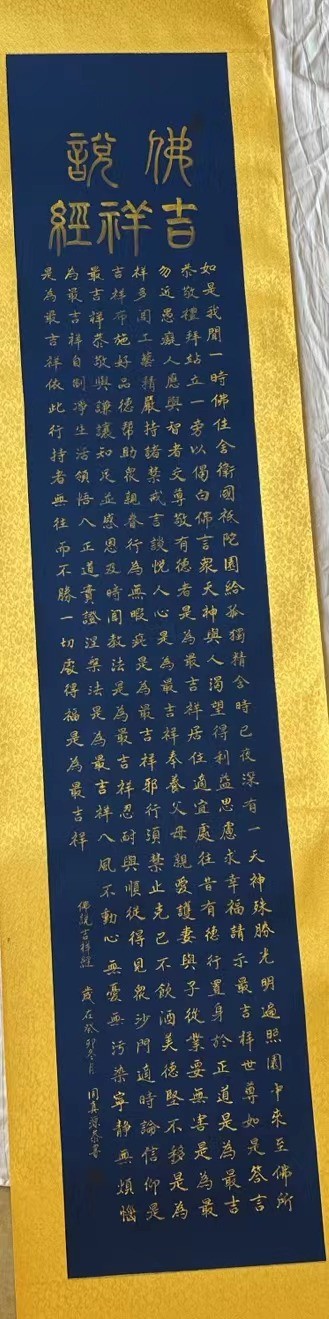 佛說
吉祥經
如是我聞一時佛住舍衛國祇陀園給孤獨精舍時已夜深有一天神殊勝光明遍照園中來至佛所
恭敬禮拜站立一旁以偈白佛言衆天神與人渴望得利益思慮求幸福請示最吉祥世尊如是答言
勿近愚癡人應與智者交尊敬有德者是為最吉祥居住適宜處往昔有德行置身於正道是為最吉
祥多聞工藝精嚴持諸禁戒言談悅人心是為最吉祥奉養父母親愛護妻與子從業要無害是為最
吉祥布施好品德幫助衆親眷行為無瑕疵是為最吉祥邪行須禁止克己不飲酒美德堅不移是為
最吉祥恭敬與謙讓知足並感恩及時聞教法是為最吉祥忍耐與順從得見衆沙門適時論信仰是
為最吉祥自制淨生活領悟八正道實證涅槃法是為最吉祥八風不動心無憂無污染寧靜無煩惱
是為最吉祥依此行持者無往而不勝一切處得福是為最吉祥
佛說吉祥經 歲在癸卯冬月 周真